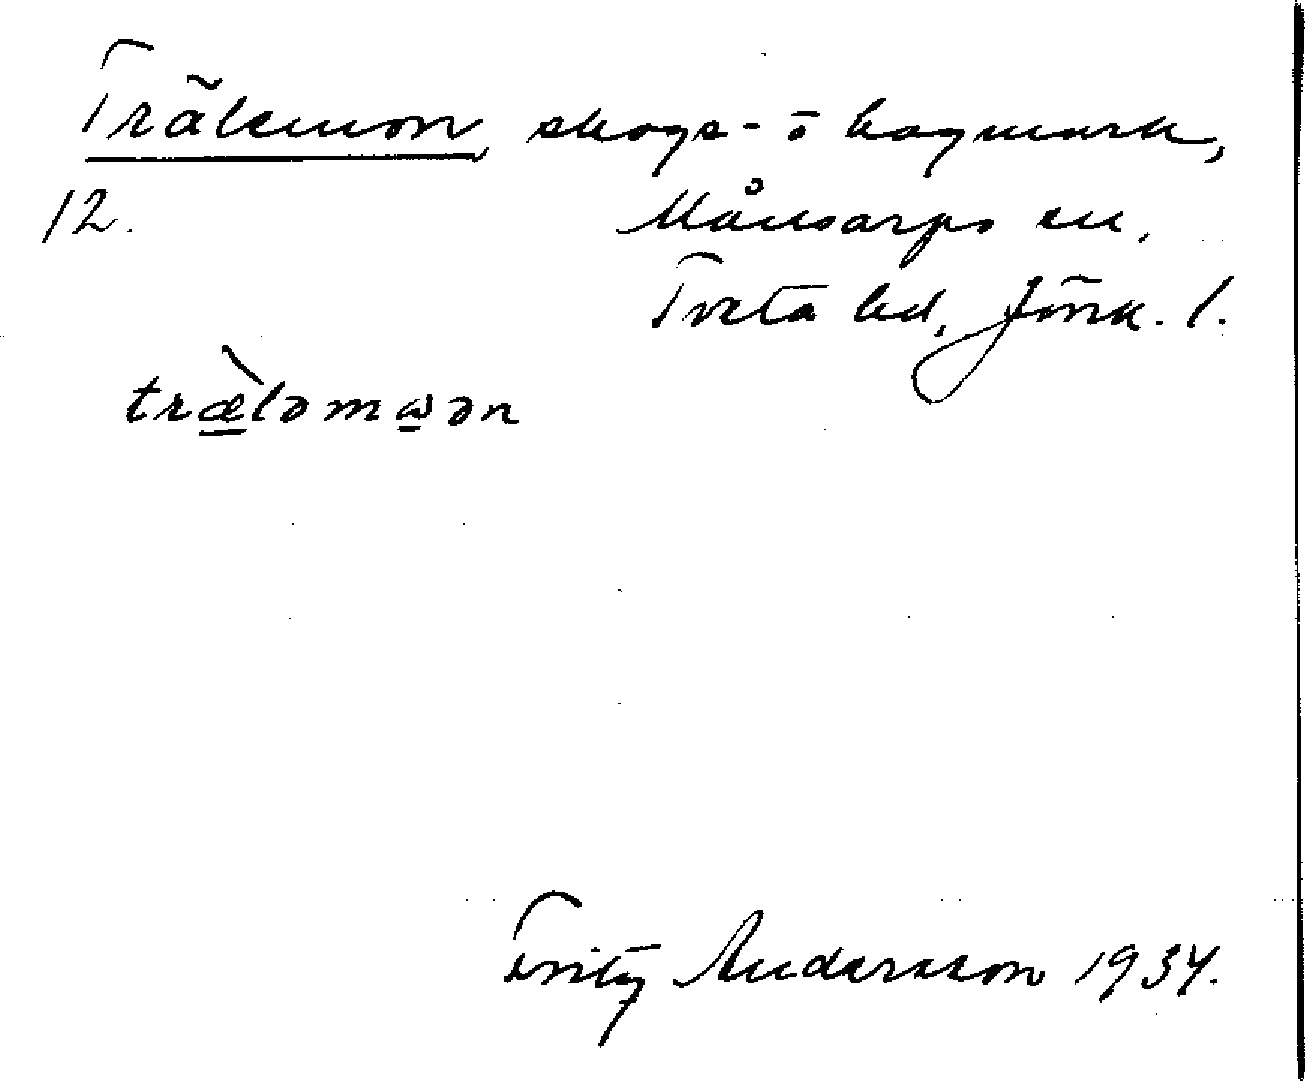 Trälemon, skogs- o hagmark,
12. Månsarps sn,
Tveta hd, Jönk. l.
træ̀ləmωən
Fritz Andersson 1934.